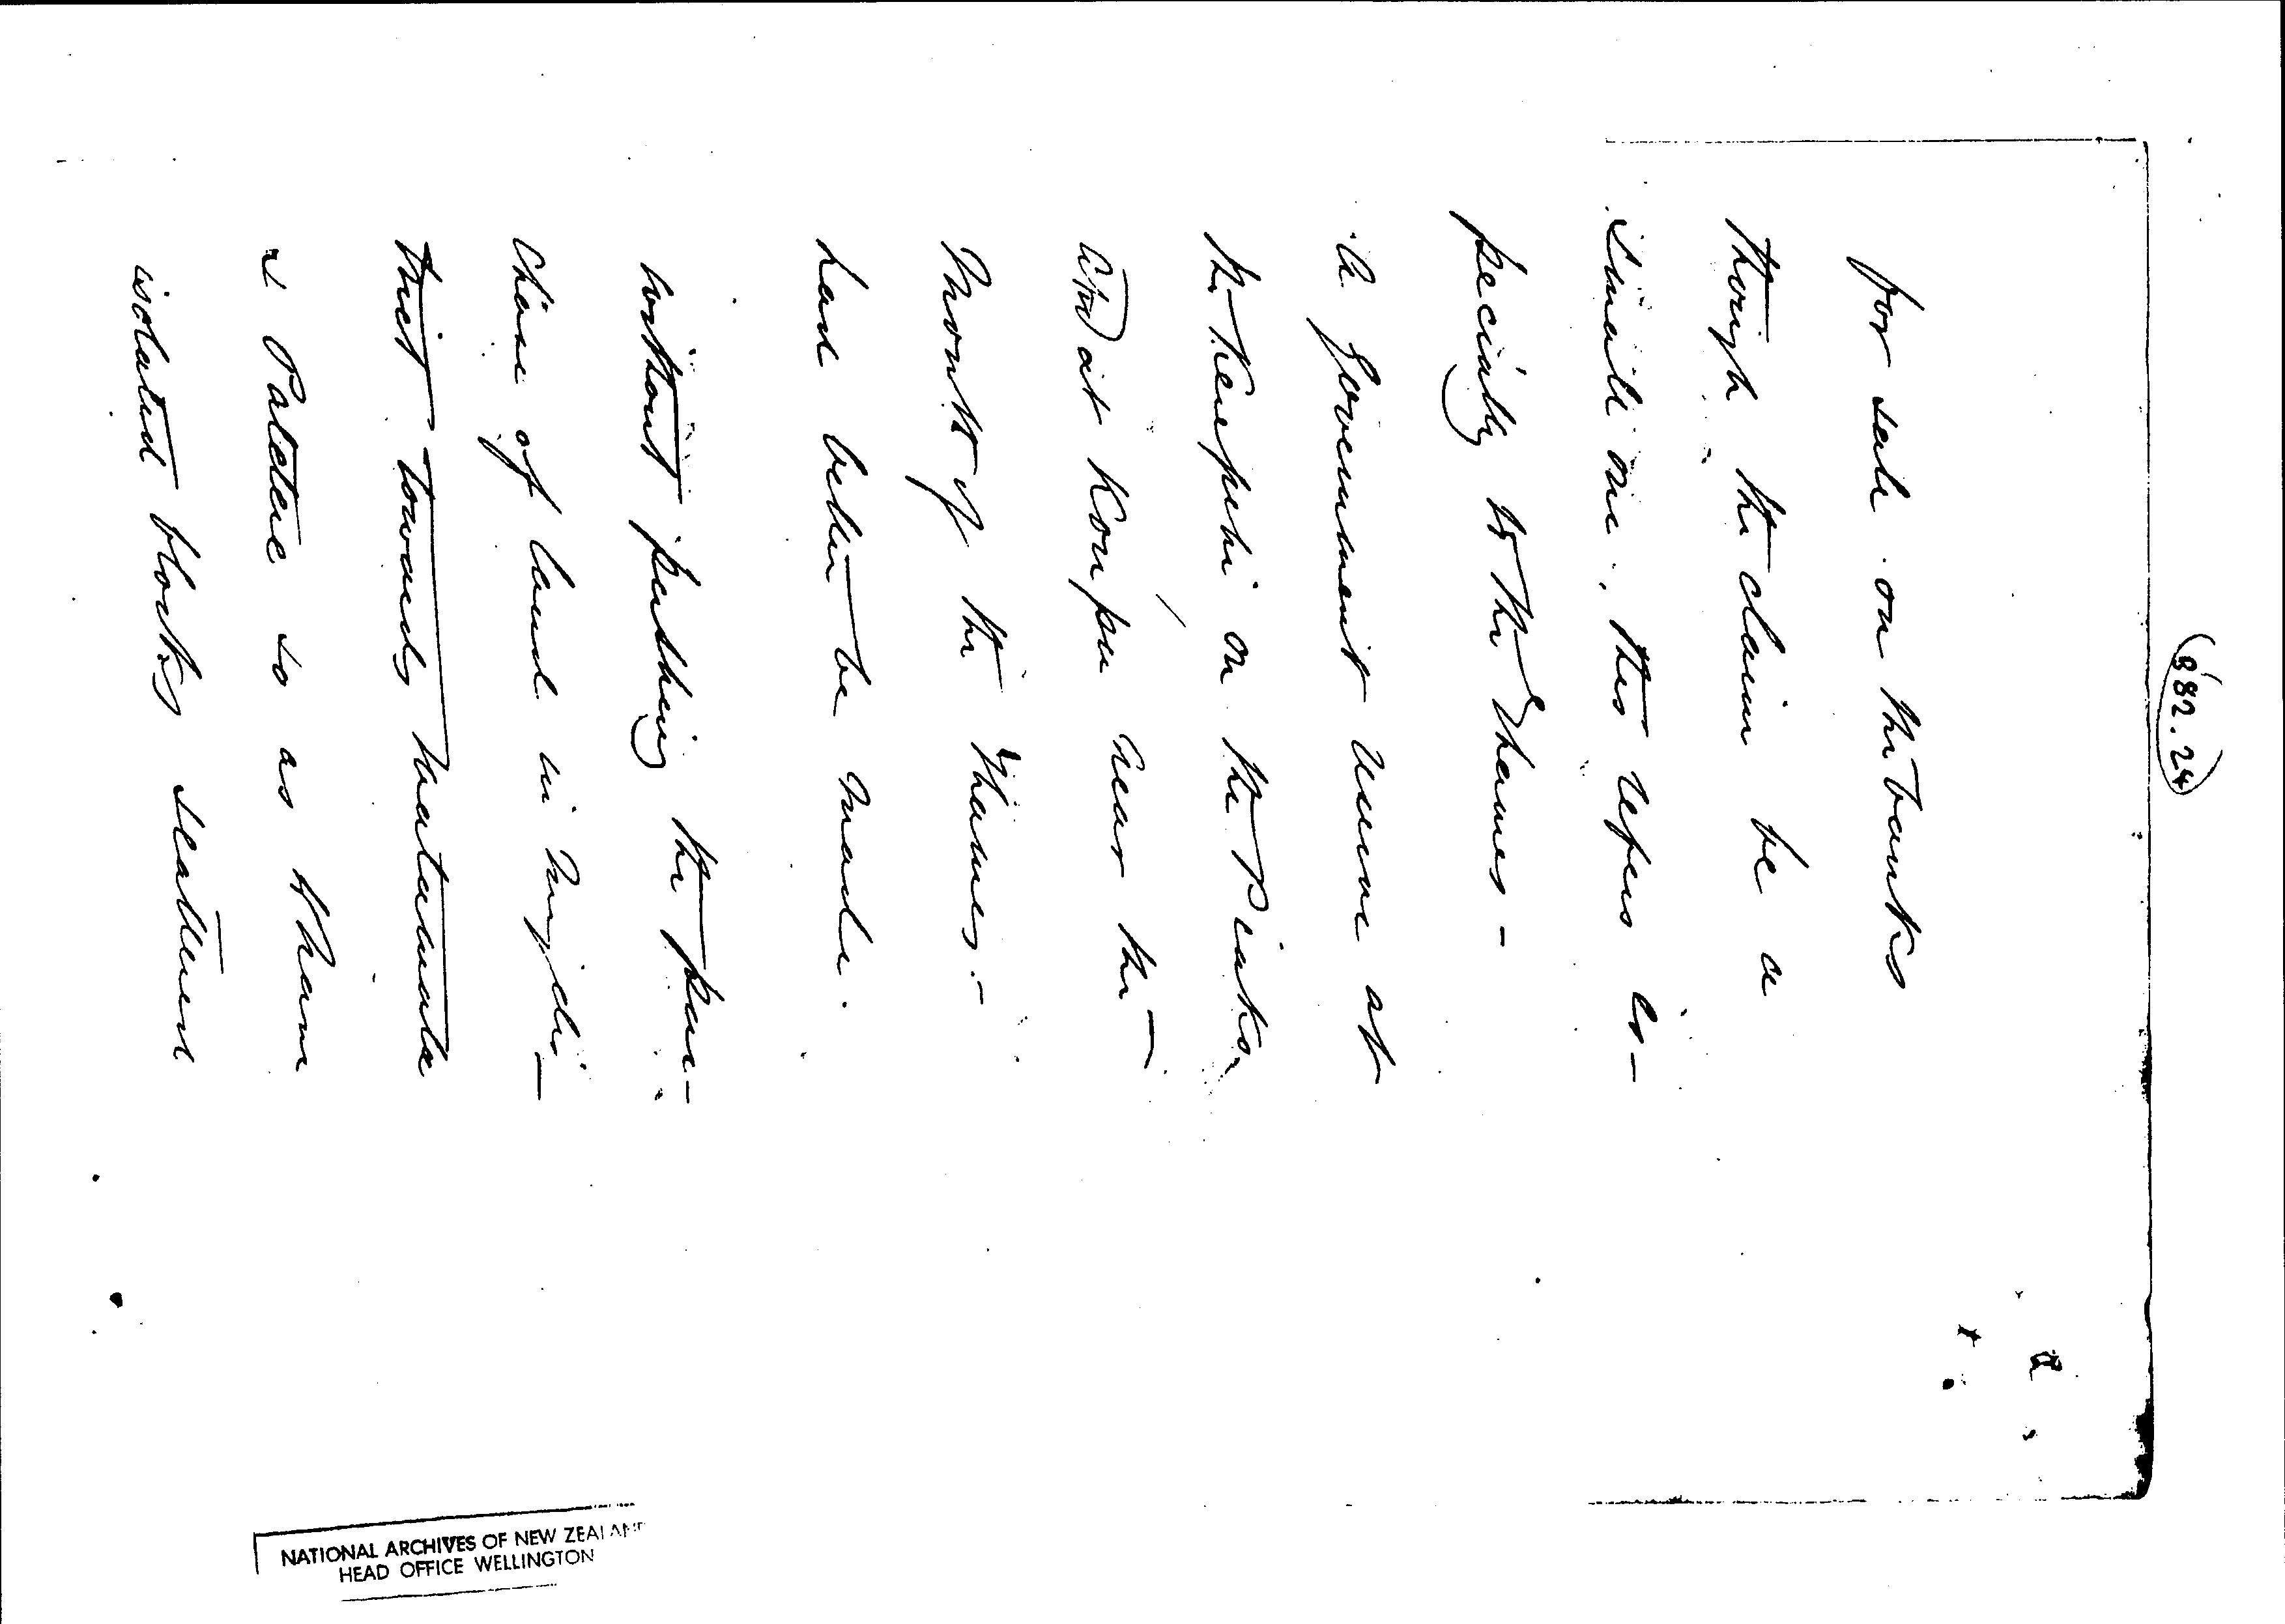 882.24
for sale on the banks
though the claim be a
small one, this refers es-
pecially to the Thames -
A Government Reserve at
the Kerepehi on the Piako
and at Kōupu near the
Mouth of the Thames -
had better be made.
without pushing the pur-
chase of land in
trict towards Matamata
& Patetere so as to have
isolated blocks scattered
NATIONAL ARCHIVES OF NEW ZEALAND
HEAD OFFICE WELLINGTON